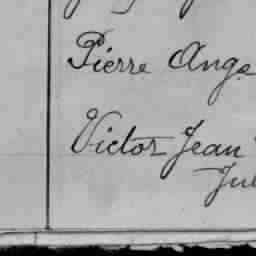 Pierre Ange
Victor Jean
Jul